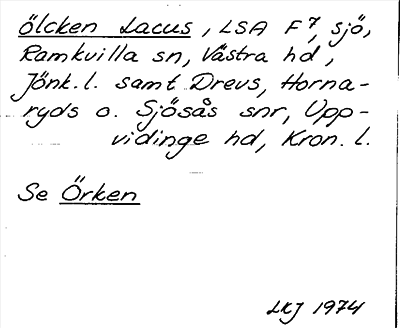 Ölcken Lacus, LSA F7, sjö,
Ramkvilla sn, Västra hd,
Jönk.l. samt Drevs, Horna-
ryds o. Sjösås snr, Upp-
vidinge hd, Kron. l.
Se Örken
LKJ 1974